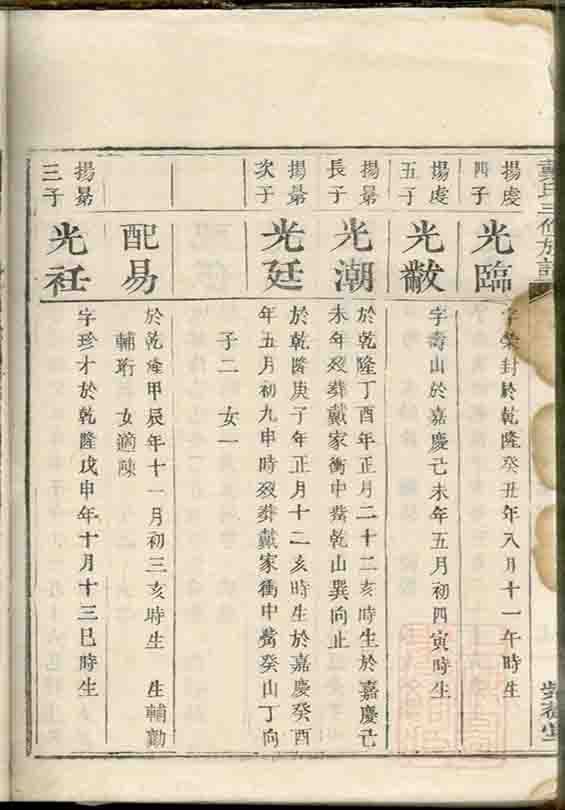 戴氏三修族譜
揚虔
四子
光臨
字榮封於乾隆癸丑年八月十一午時生
揚虔
五子
光黻
字壽山於嘉慶己未年五月初四寅時生
揚景
長子
光潮
於乾隆丁酉年正月二十二亥時生於嘉慶己
未年歿葬戴家衝中嘴乾山巽向止
揚景
次子
光廷
於乾隆庚子年正月十二亥時生於嘉慶癸酉
年五月初九申時歿葬戴家衝中嘴癸山丁向
子二 女一
配易
於乾隆甲辰年十一月初三亥時生 生輔勤
輔珩 女適陳
揚景
三子
光社
字珍才於乾隆戊申年十月十三巳時生